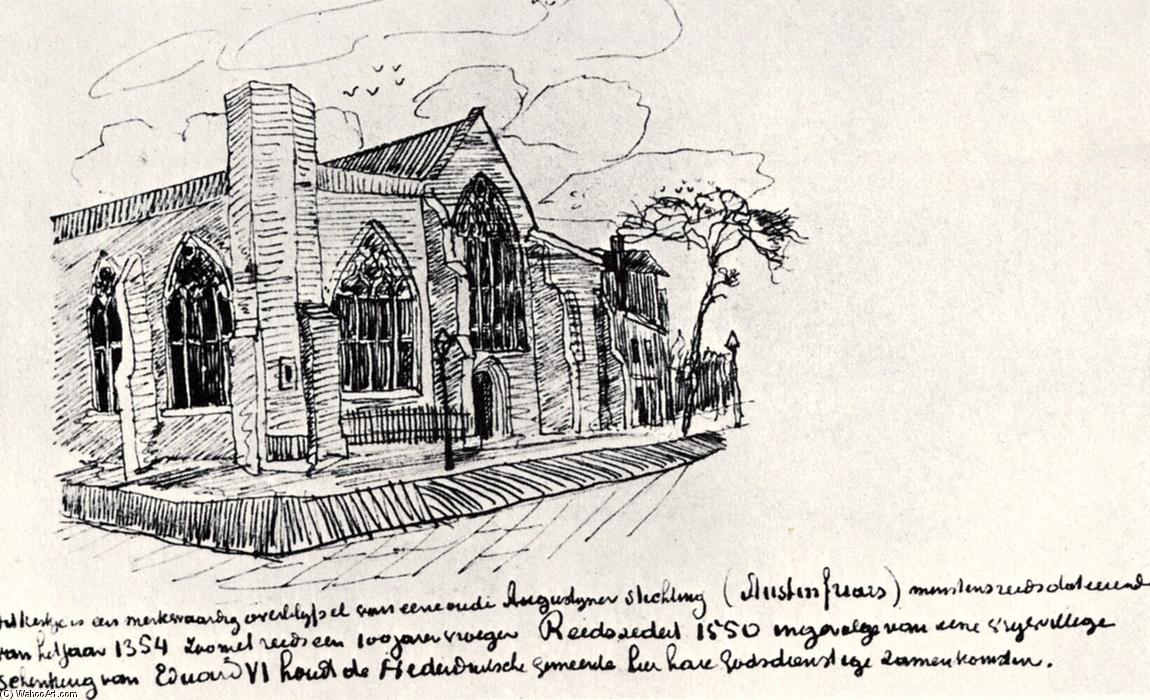 kerkje is een merkwaardig overblijfsel van eene oude Augustijner Stichting (Austinfriars) minstens reeds dateerend
van het jaar 1354 zoo niet reeds een 100 jaren vroeger Reeds sedert 1550 ingevolge van eene vrijwillige
schenking van Eduard VI houdt de Nederduitsche gemeente hier hare Godsdienstige zamenkomsten.
(C) WahooArt.com